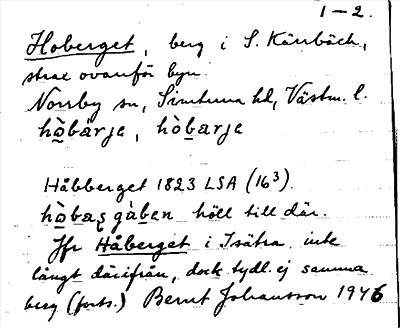 1 – 2.
Hoberget, berg i S. Kärrbäck,
strax ovanför byn.
Norrby sn, Simtuna hd, Västm. l.
hò̱bärje, hòbarje
Håbberget 1823 LSA (16³).
hò̱baʂgàben höll till där.
Jfr Håberget i Isätra, inte
långt därifrån, dock tydl. ej samma
berg (forts.) Bernt Johansson 1946